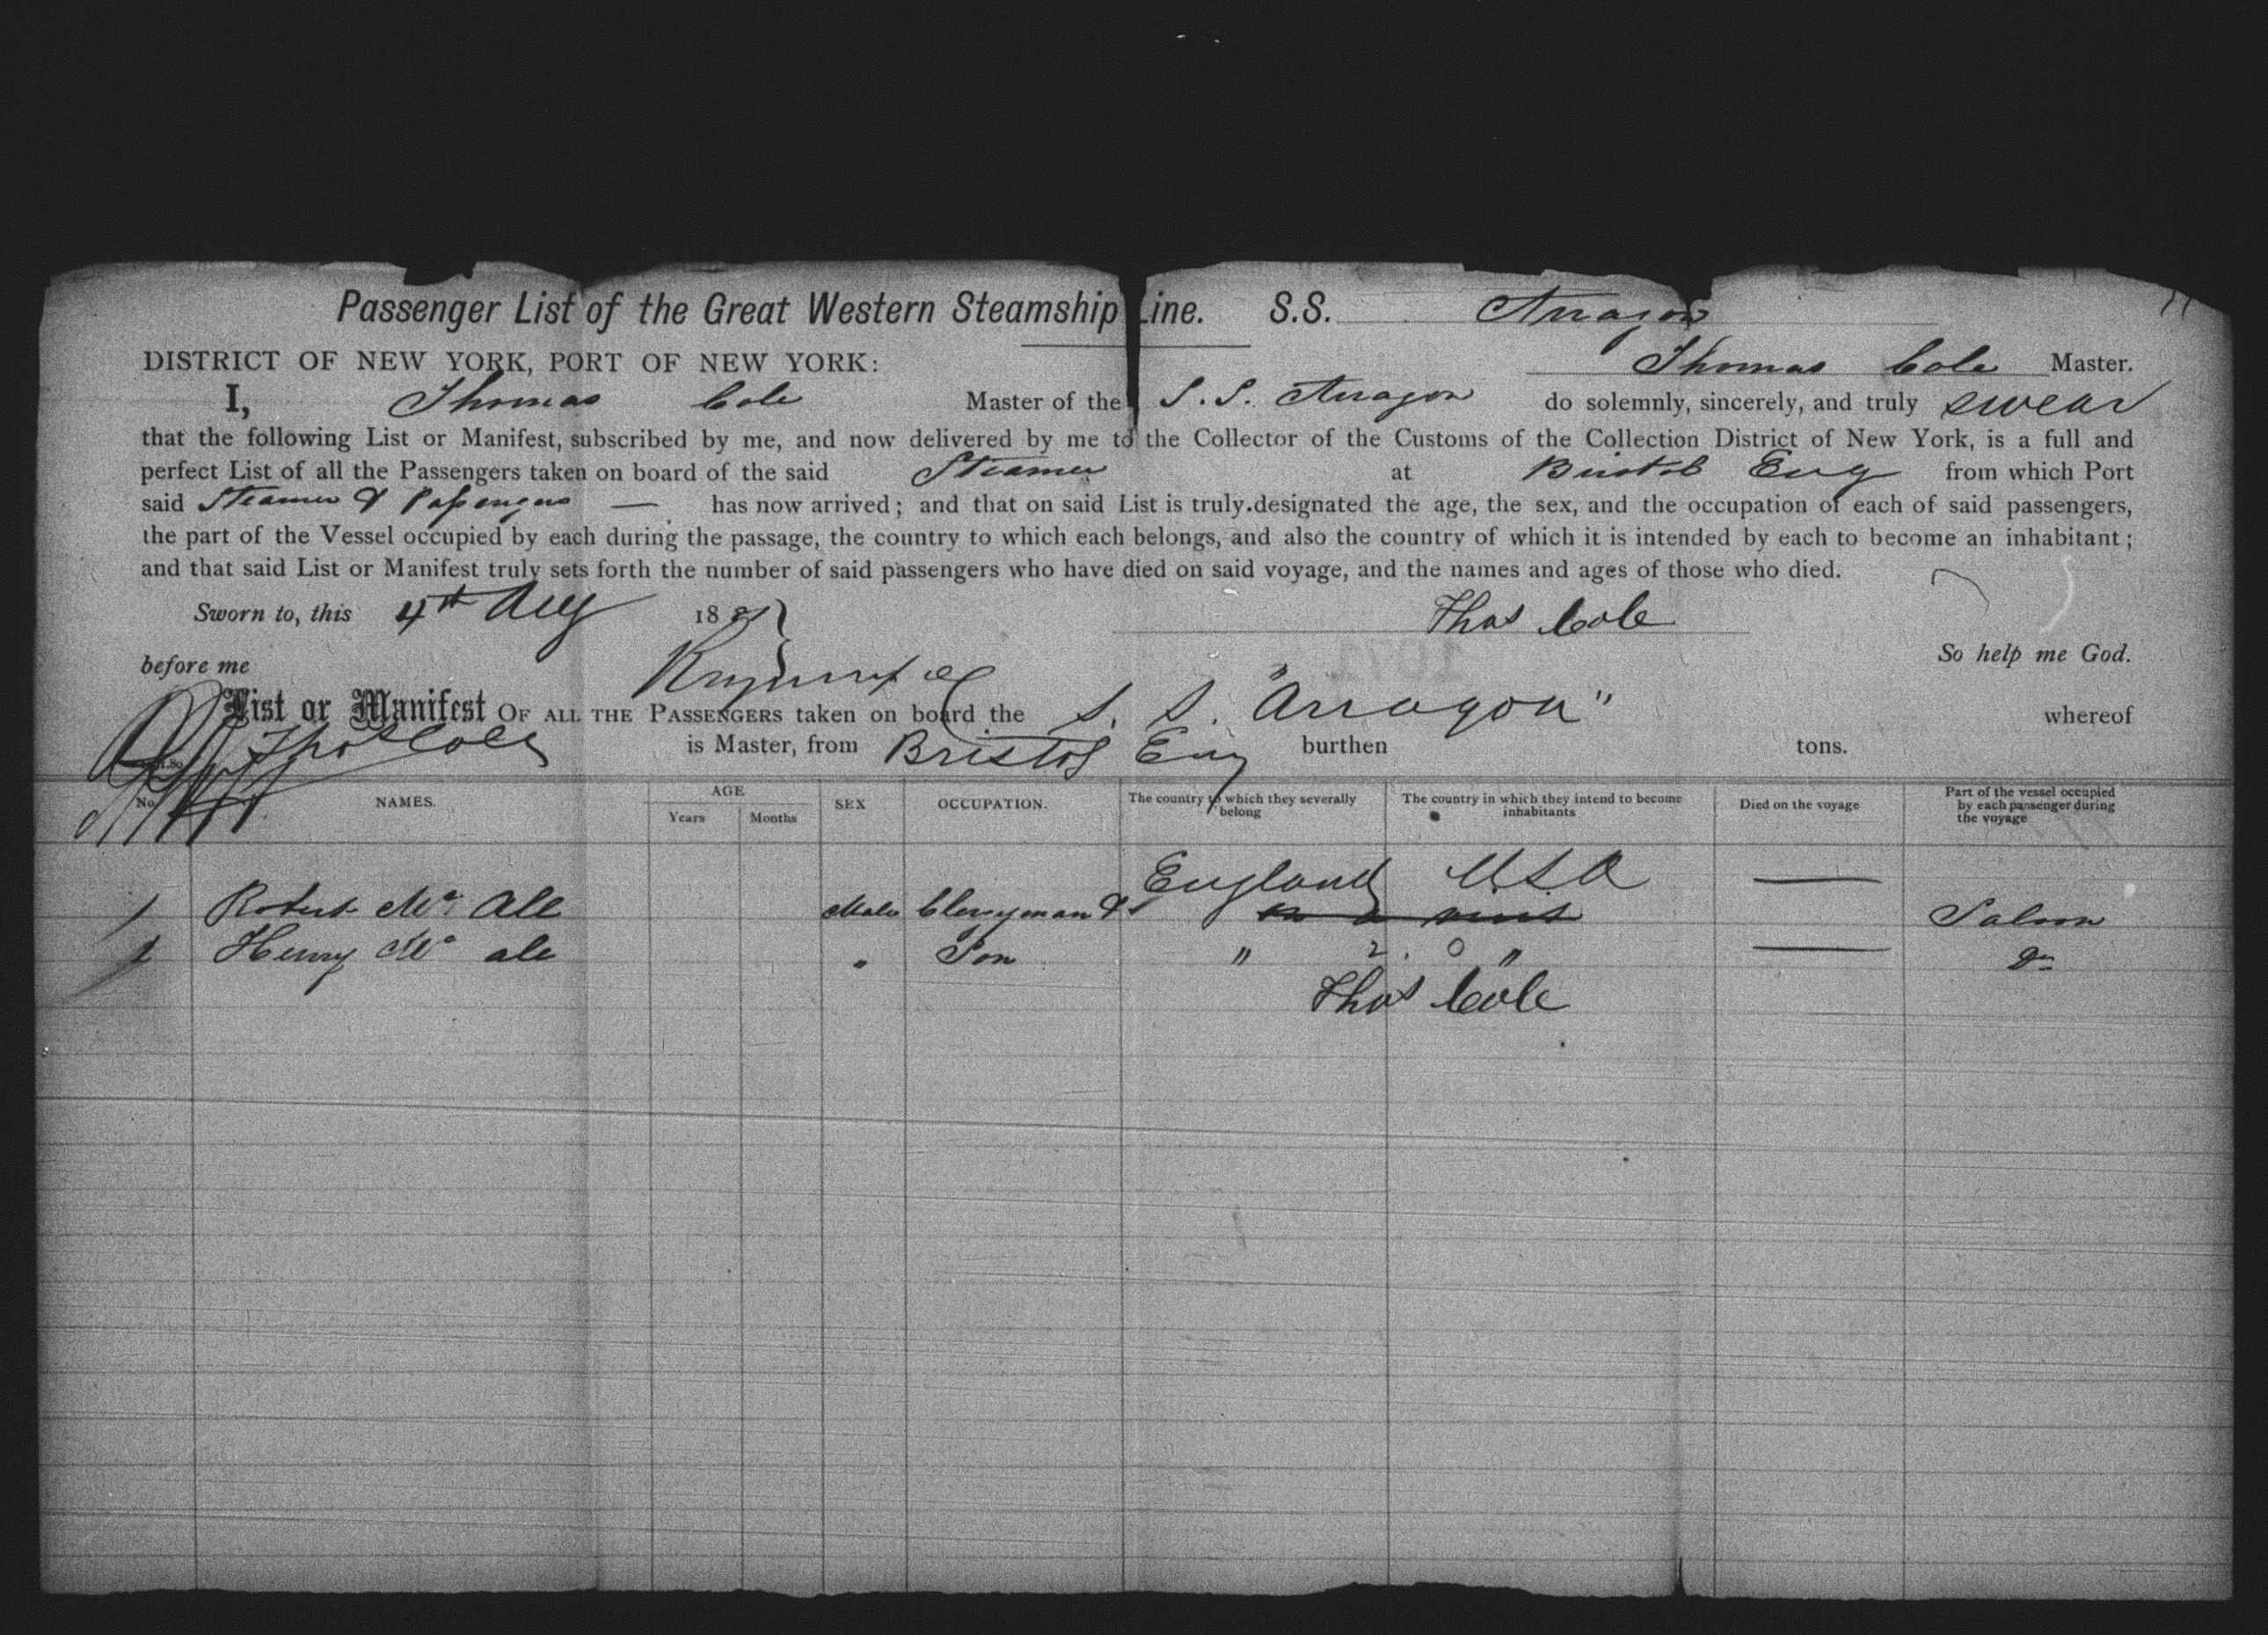 Passenger List of the Great Western Steamship Line. S.S. Arragon
DISTRICT OF NEW YORK, PORT OF NEW YORK: Thomas Cole Master.
I, Thomas Cole Master of the S.S. Arragon do solemnly, sincerely, and truly swear
that the following List or Manifest, subscribed by me, and now delivered by me to the Collector of the Customs of the Collection District of New York, is a full and
perfect List of all the Passengers taken on board of the said Steamer at Bristol Eng from which Port
said Steamer & Passengers — has now arrived; and that on said List is truly designated the age, the sex, and the occupation of each of said passengers,
the part of the Vessel occupied by each during the passage, the country to which each belongs, and also the country of which it is intended by each to become an inhabitant;
and that said List or Manifest truly sets forth the number of said passengers who have died on said voyage, and the names and ages of those who died.
Sworn to, this 4th Aug 188 Thos Cole
before me So help me God.
List or Manifest OF ALL THE PASSENGERS taken on board the S. S. "Arragon" whereof
Thos Cole is Master, from Bristol Eng burthen tons.
No. NAMES. AGE Years Months SEX OCCUPATION. The country to which they severally belong The country in which they intend to become inhabitants Died on the voyage Part of the vessel occupied by each passenger during the voyage
England U.S.A —
1 Robert Mc All Male Clergyman & on a visit Saloon
2 Henry Mc all " Son " 2. 0 " — Do
Thos Cole